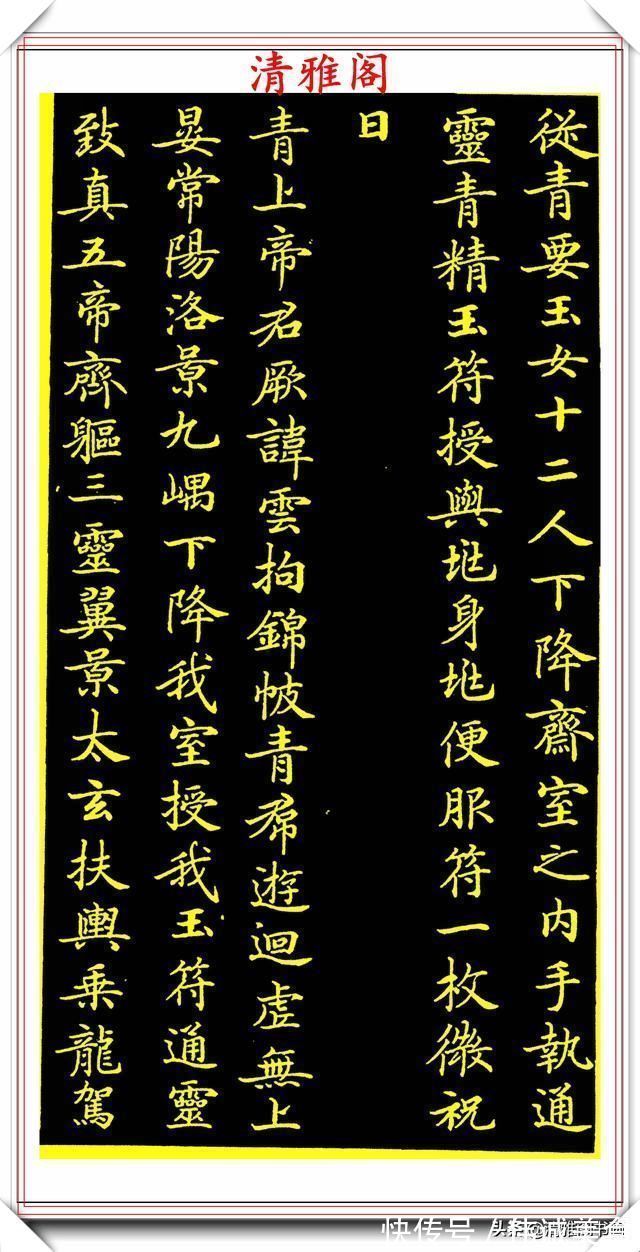 清雅阁
従青要玉女十二人下降齋室之内手執通
靈青精玉符授與兆身兆便服符一枚微祝
曰
青上帝君厥諱雲拘錦帔青帬遊迴虛無上
晏常陽洛景九嵎下降我室授我玉符通靈
致真五帝齊軀三靈翼景太玄扶輿乗龍駕
快传号
头条